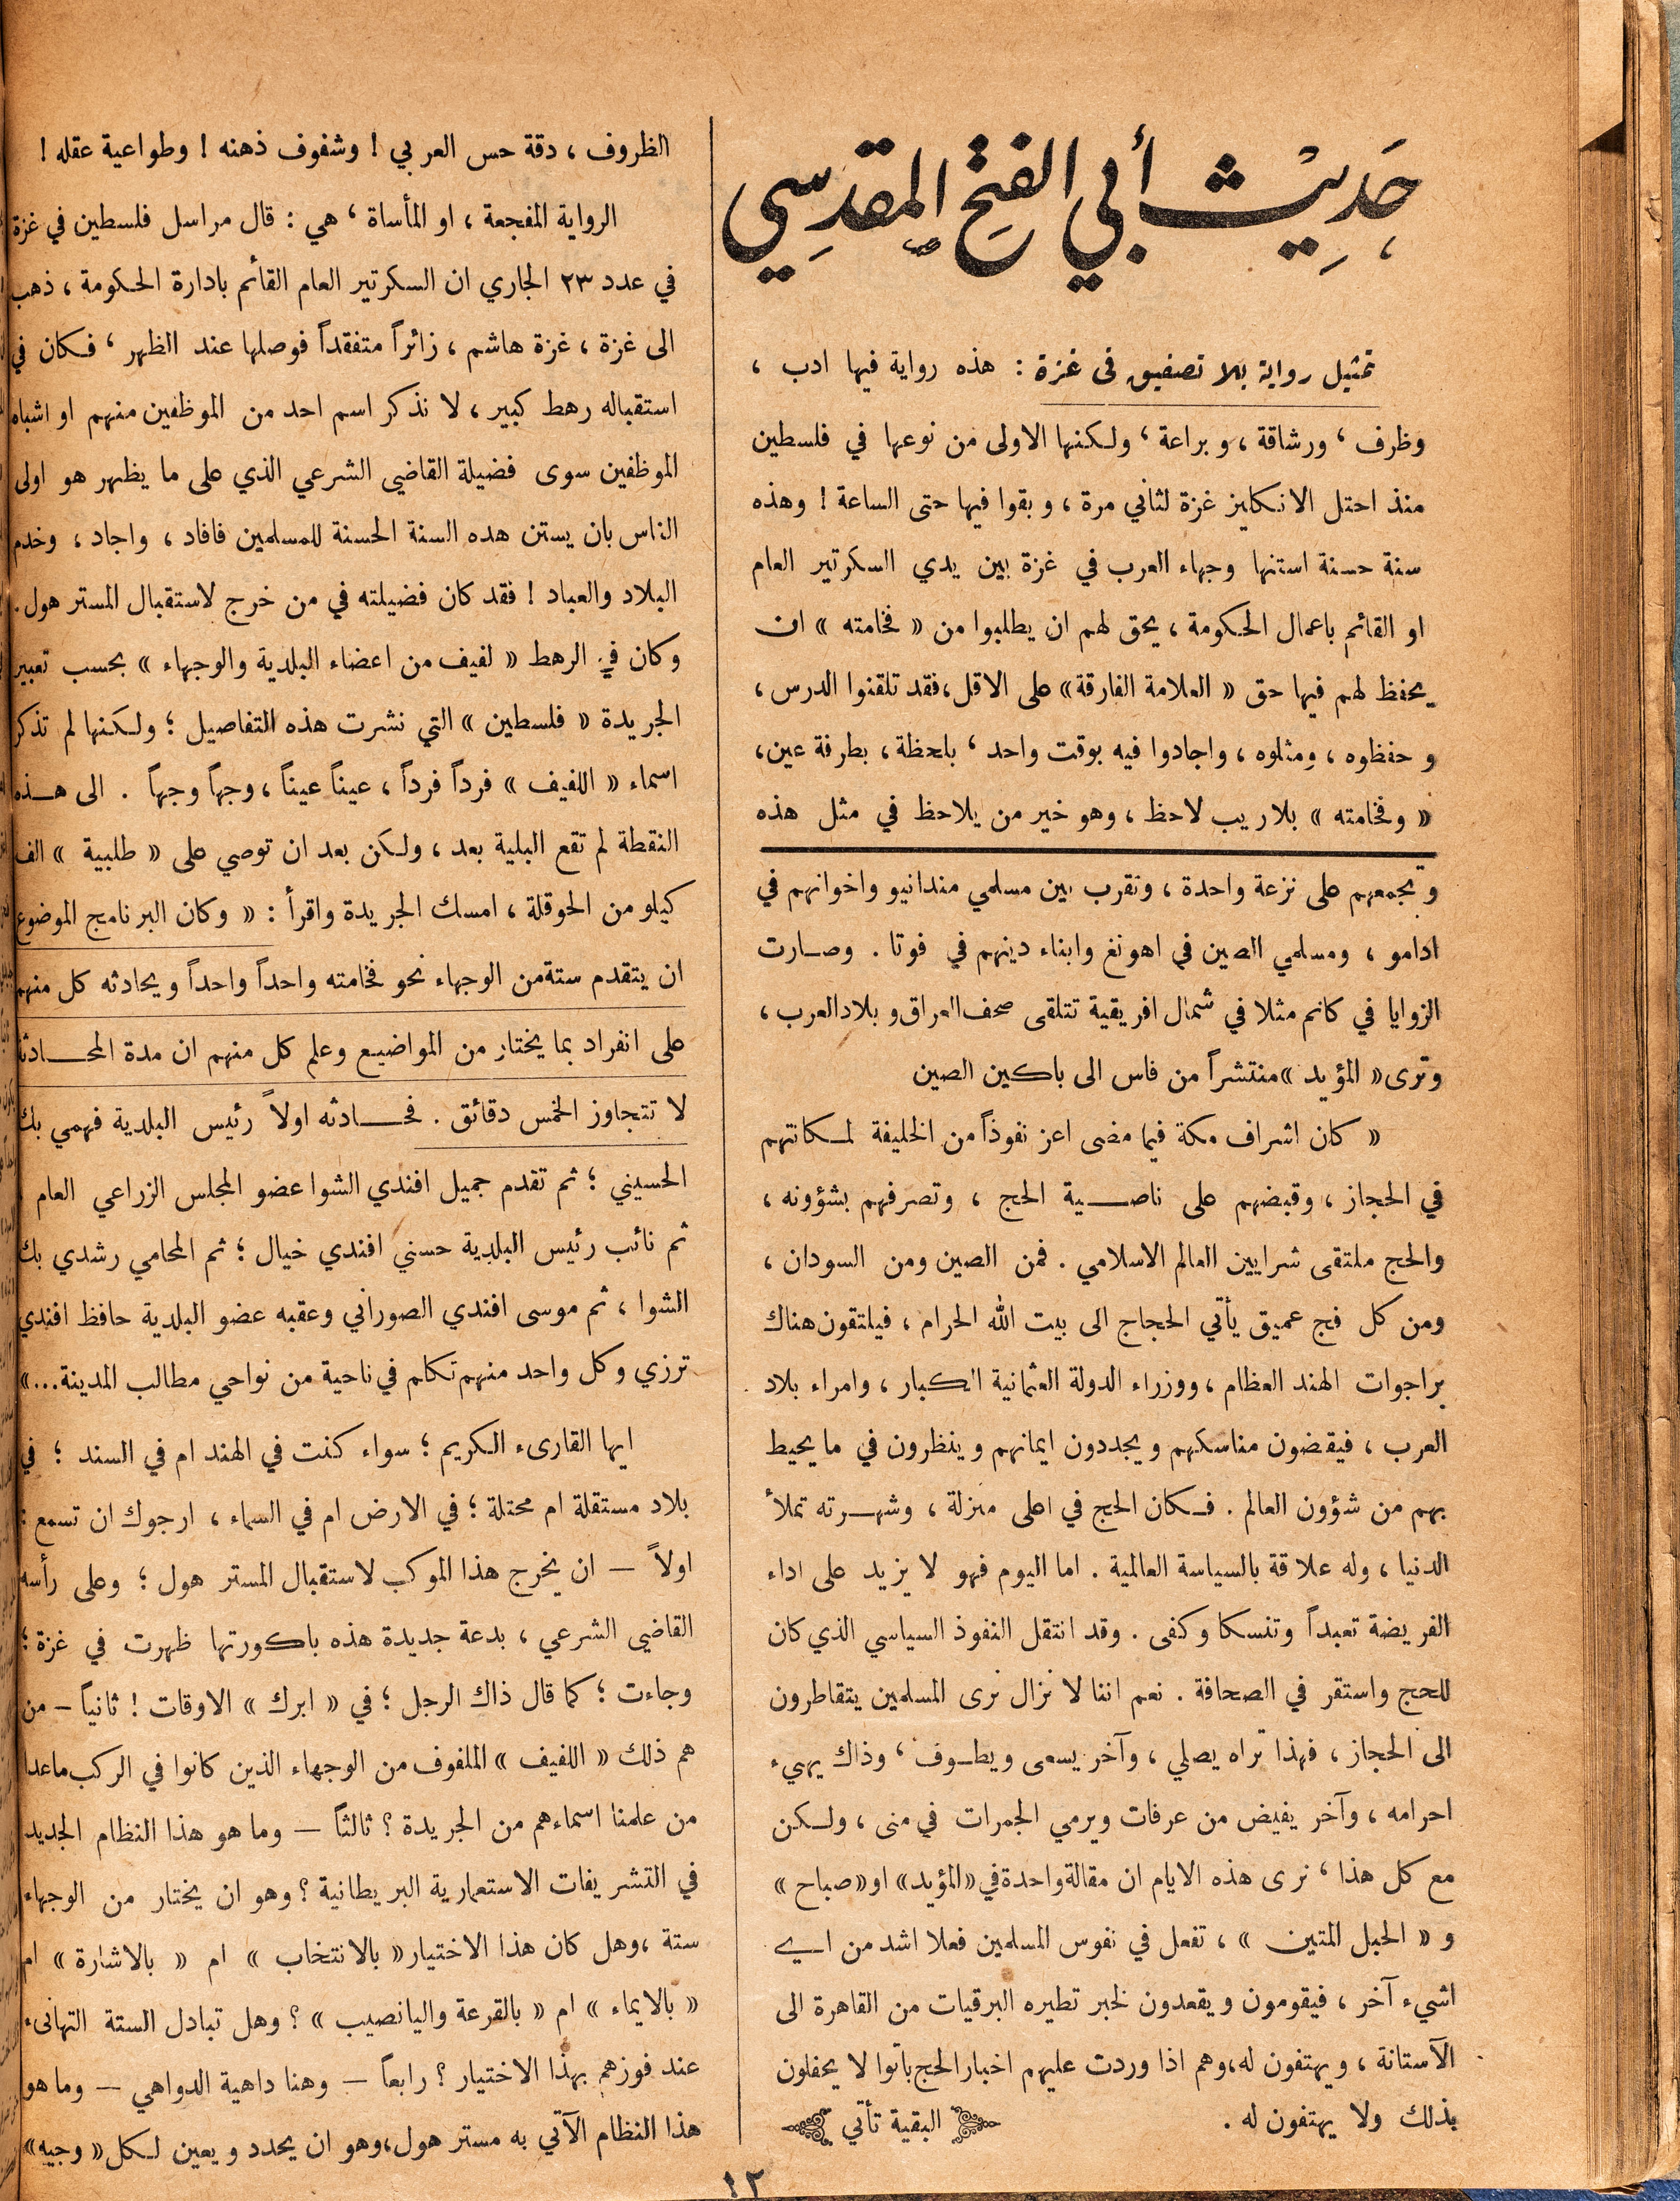 حَدِيْث أبي الفتح المقدسي
تمثيل رواية بلا تصفيق في غزة : هذه رواية فيها ادب ،
وظرف ، ورشاقة ، وبراعة ، ولكنها الاولى من نوعها في فلسطين
منذ احتل الانكليز غزة لثاني مرة ، وبقوا فيها حتى الساعة ! وهذه
سنة حسنة استنها وجهاء العرب في غزة بين يدي السكرتير العام
او القائم باعمال الحكومة ، يحق لهم ان يطلبوا من « فخامته » ان
يحفظ لهم فيها حق « العلامة الفارقة » على الاقل ، فقد تلقنوا الدرس ،
و حفظوه ، ومثلوه ، واجادوا فيه بوقت واحد ، بلحظة ، بطرفة عين ،
« وفخامته » بلا ريب لاحظ ، وهو خير من يلاحظ في مثل هذه
الظروف ، دقة حس العربي ! وشفوف ذهنه ! وطواعية عقله !
الرواية المفجعة ، او المأساة ، هي : قال مراسل فلسطين في غزة
في عدد ٢٣ الجاري ان السكرتير العام القائم بادارة الحكومة ، ذهب
الى غزة ، غزة هاشم ، زائراً متفقداً فوصلها عند الظهر ، فكان في
استقباله رهط كبير ، لا نذكر اسم احد من الموظفين منهم او اشباه
الموظفين سوى فضيلة القاضي الشرعي الذي على ما يظهر هو اولى
الناس بان يستن هده السنة الحسنة للمسلمين فافاد ، واجاد ، وخدم
البلاد والعباد ! فقد كان فضيلته في من خرج لاستقبال المستر هول .
وكان في الرهط « لفيف من اعضاء البلدية والوجهاء » بحسب تعبير
الجريدة « فلسطين » التي نشرت هذه التفاصيل ؛ ولكنها لم تذكر
اسماء « اللفيف » فرداً فرداً ، عيناً عيناً ، وجهاً وجهاً . الى هذه
النقطة لم تقع البلية بعد ، ولكن بعد ان توصي على « طلبية » الف
كيلو من الحوقلة ، امسك الجريدة واقرأ : « وكان البرنامج الموضوع
ان يتقدم ستة من الوجهاء نحو فخامته واحداً واحداً ويحادثه كل منهم
على انفراد بما يختار من المواضيع وعلم كل منهم ان مدة المحادثة
لا تتجاوز الخمس دقائق . فحادثه اولاً رئيس البلدية فهمي بك
الحسيني ؛ ثم تقدم جميل افندي الشوا عضو المجلس الزراعي العام
ثم نائب رئيس البلدية حسني افندي خيال ؛ ثم المحامي رشدي بك
الشوا ، ثم موسى افندي الصوراني وعقبه عضو البلدية حافظ افندي
ترزي وكل واحد منهم تكلم في ناحية من نواحي مطالب المدينة ... »
ايها القارىء الكريم ؛ سواء كنت في الهند ام في السند ؛ في
بلاد مستقلة ام محتلة ؛ في الارض ام في السماء ، ارجوك ان تسمع :
اولاً – ان يخرج هذا الموكب لاستقبال المستر هول ؛ وعلى رأسه
القاضي الشرعي ، بدعة جديدة هذه باكورتها ظهرت في غزة ؛
وجاءت ؛ كما قال ذاك الرجل ؛ في « ابرك » الاوقات ! ثانياً – من
هم ذلك « اللفيف » الملفوف من الوجهاء الذين كانوا في الركب ما عدا
من علمنا اسماءهم من الجريدة ؟ ثالثاً – وما هو هذا النظام الجديد
في التشريفات الاستعمارية البريطانية ؟ وهو ان يختار من الوجهاء
ستة ، وهل كان هذا الاختيار « بالانتخاب » ام « بالاشارة » ام
« بالايماء » ام « بالقرعة واليانصيب » ؟ وهل تبادل الستة التهانىء
عند فوزهم بهذا الاختيار ؟ رابعاً – وهنا داهية الدواهي – وما هو
هذا النظام الآتي به مستر هول ، وهو ان يحدد ويعين لكل « وجيه »
وتجمعهم على نزعة واحدة ، وتقرب بين مسلمي مندانيو واخوانهم في
ادامو ، ومسلمي الصين في اهونغ وابناء دينهم في فوتا . وصارت
الزوايا في كانم مثلا في شمال افريقية تتلقى صحف العراق وبلاد العرب ،
وترى « المؤيد » منتشراً من فاس الى باكين الصين
« كان اشراف مكة فيما مضى اعز نفوذاً من الخليفة لمكانتهم
في الحجاز ، وقبضهم على ناصية الحج ، وتصرفهم بشؤونه ،
والحج ملتقى شرايين العالم الاسلامي . فمن الصين ومن السودان ،
ومن كل فج عميق يأتي الحجاج الى بيت الله الحرام ، فيلتقون هناك
براجوات الهند العظام ، ووزراء الدولة العثمانية الكبار ، وامراء بلاد
العرب ، فيقضون مناسكهم ويجددون ايمانهم وينظرون في ما يحيط
بهم من شؤون العالم . فكان الحج في اعلى منزلة ، وشهرته تملأ
الدنيا ، وله علاقة بالسياسة العالمية . اما اليوم فهو لا يزيد على اداء
الفريضة تعبداً وتنسكا وكفى . وقد انتقل النفوذ السياسي الذي كان
للحج واستقر في الصحافة . نعم اننا لا نزال نرى المسلمين يتقاطرون
الى الحجاز ، فهذا تراه يصلي ، وآخر يسعى ويطوف ، وذاك يهيء
احرامه ، وآخر يفيض من عرفات ويرمي الجمرات في منى ، ولكن
مع كل هذا ، نرى هذه الايام ان مقالة واحدة في « المؤيد » او « صباح »
و « الحبل المتين » ، تفعل في نفوس المسلمين فعلا اشد من اي
اشيء آخر ، فيقومون ويقعدون لخبر تطيره البرقيات من القاهرة الى
الآستانة ، ويهتفون له ، وهم اذا وردت عليهم اخبار الحج باتوا لا يحفلون
بذلك ولا يهتفون له .
البقية تأتي
١٢